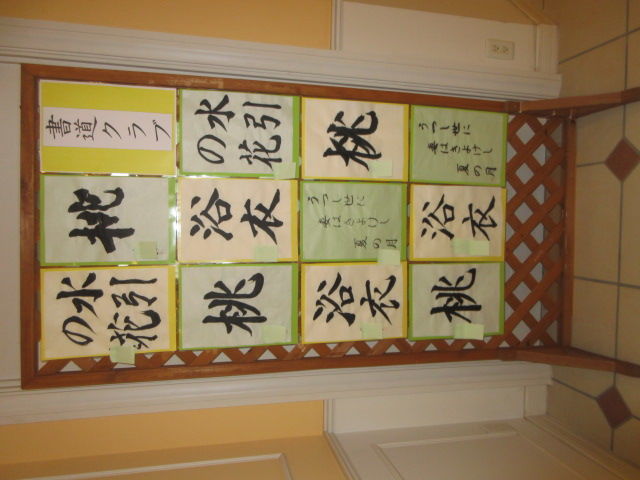 書道クラブ
桃
水引
の花
水引
の花
浴衣
桃
桃
うつし世に
妻はきよけし
夏の月
浴衣
うつし世に
妻はきよけし
夏の月
浴衣
桃